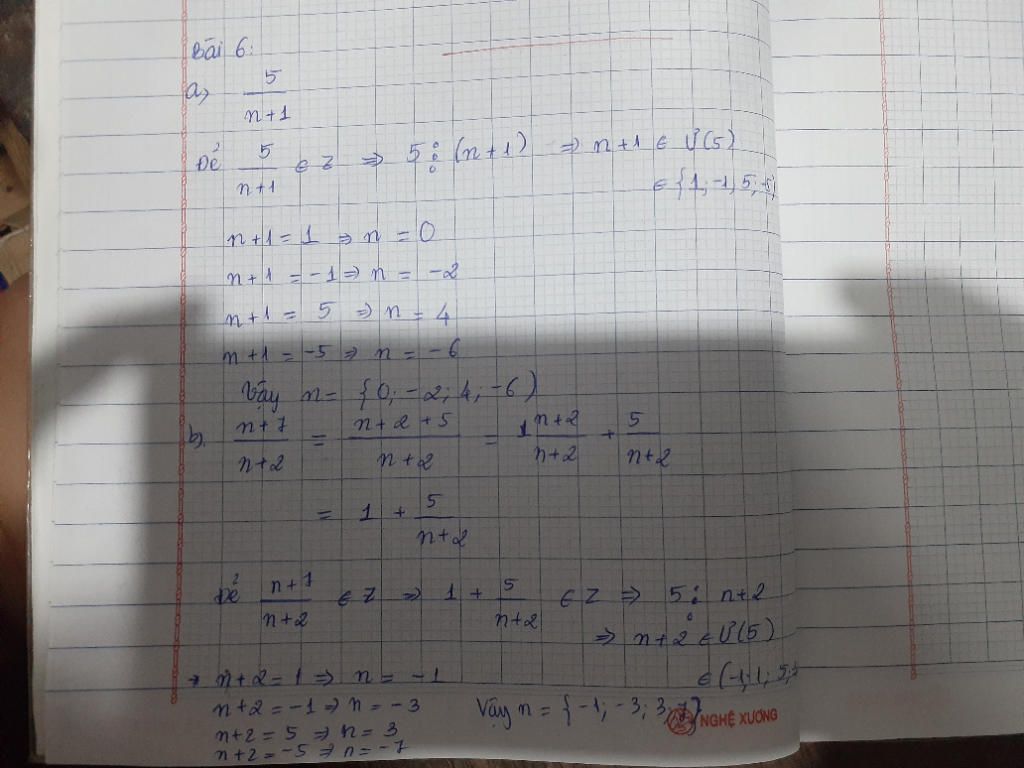 Bài 6:
a, 5/(n+1)
Để 5/(n+1) ∈ Z ⇒ 5 ⋮ (n+1) ⇒ n+1 ∈ Ư(5)
∈ {1; -1; 5; -5}
n+1 = 1 ⇒ n = 0
n+1 = -1 ⇒ n = -2
n+1 = 5 ⇒ n = 4
n+1 = -5 ⇒ n = -6
Vậy n = {0; -2; 4; -6)
b, (n+7)/(n+2) = (n+2+5)/(n+2) = 1 (n+2)/(n+2) + 5/(n+2)
= 1 + 5/(n+2)
Để (n+1)/(n+2) ∈ Z ⇒ 1 + 5/(n+2) ∈ Z ⇒ 5 ⋮ n+2
⇒ n+2 ∈ Ư(5)
→ n+2 = 1 ⇒ n = -1
n+2 = -1 ⇒ n = -3
n+2 = 5 ⇒ n = 3
n+2 = -5 ⇒ n = -7
Vậy n = { -1; -3; 3;
NGHỆ XƯƠNG